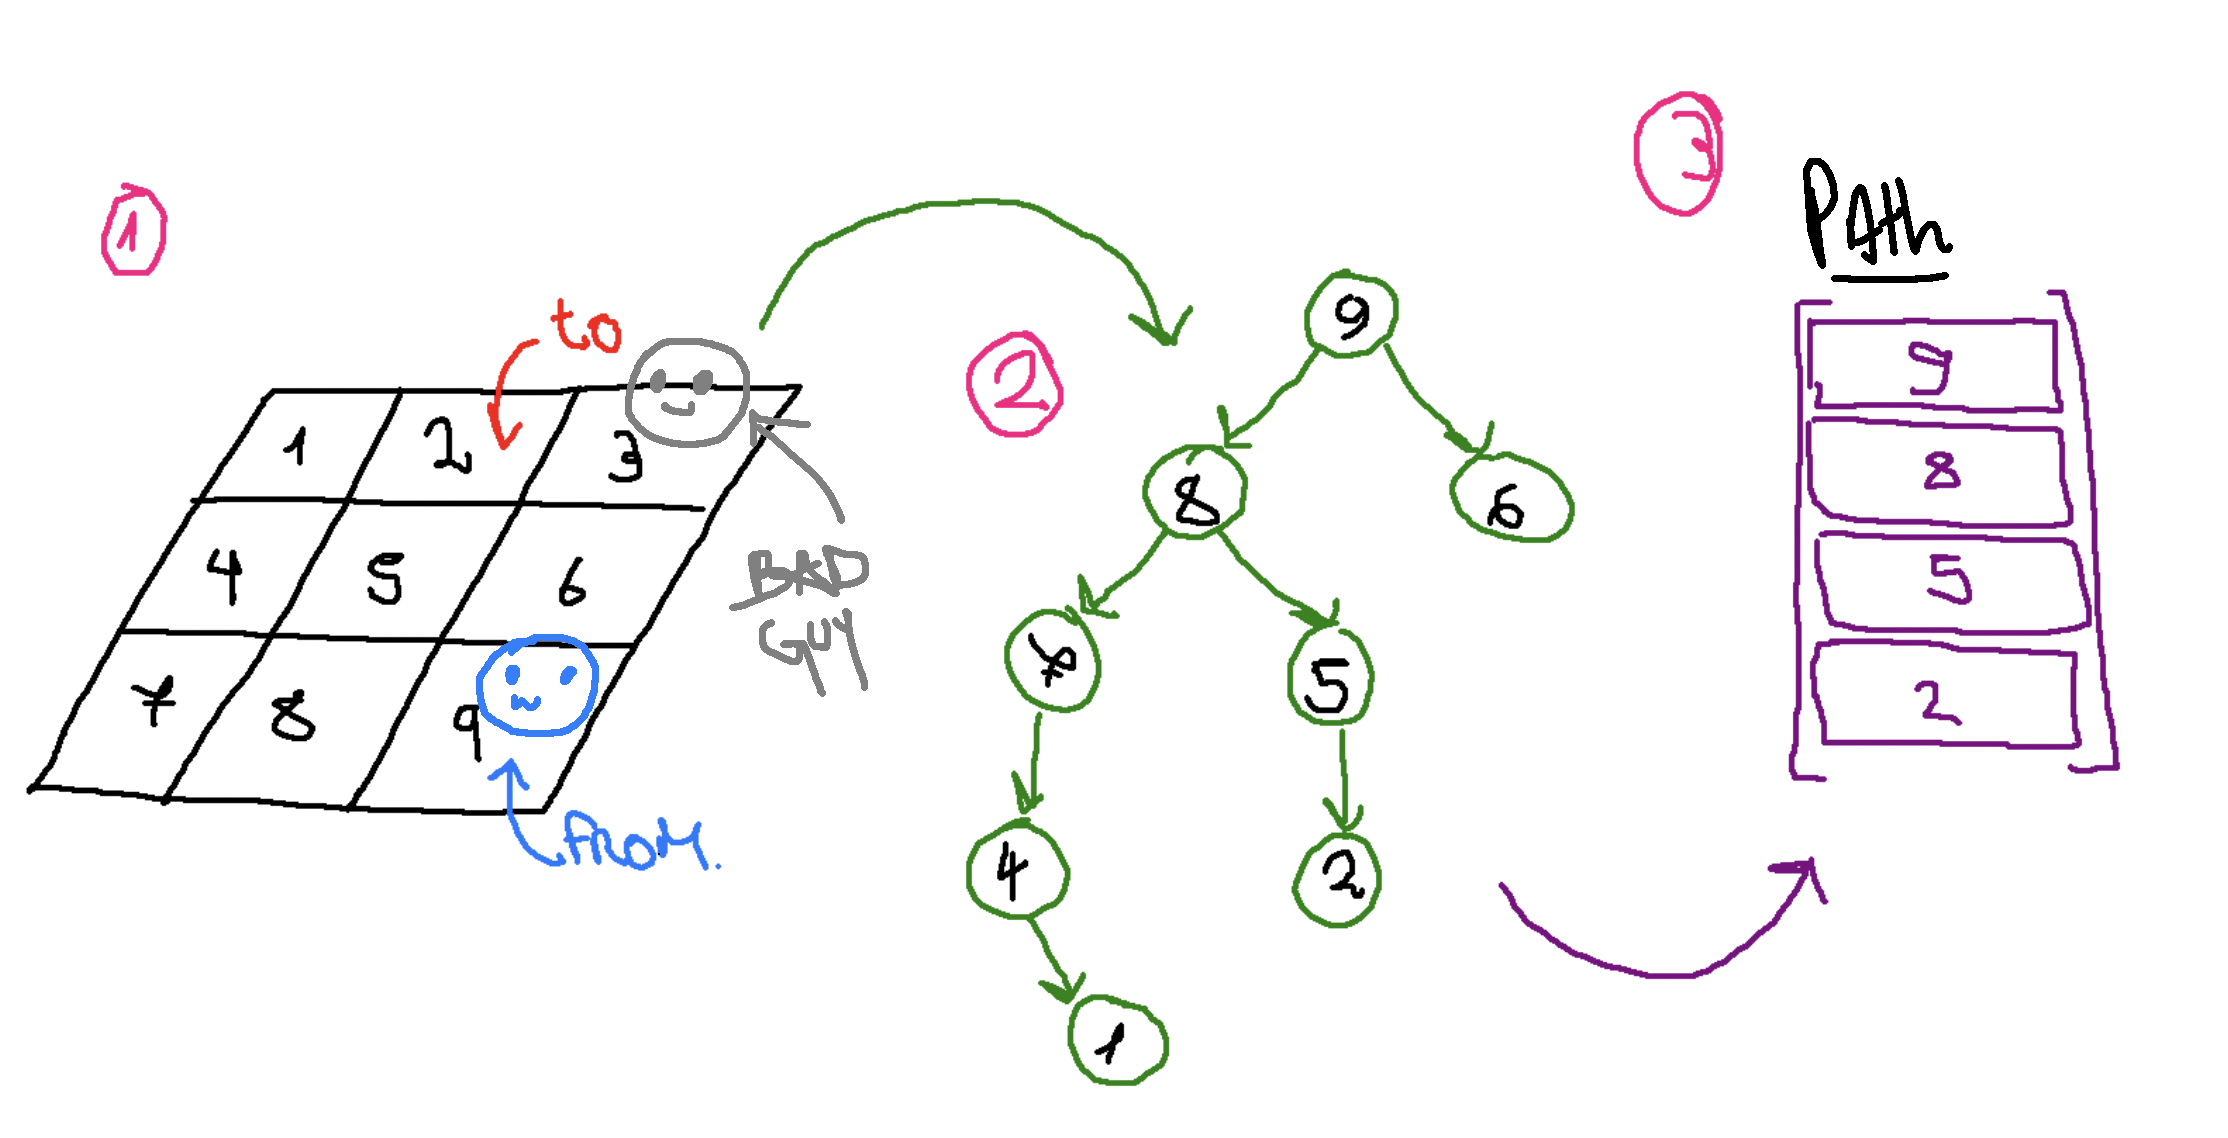 1
to
1 2 3
4 5 6
7 8 9
BAD
GUY
FROM.
2
9
8 6
7 5
4 2
1
3
PAth
9
8
5
2